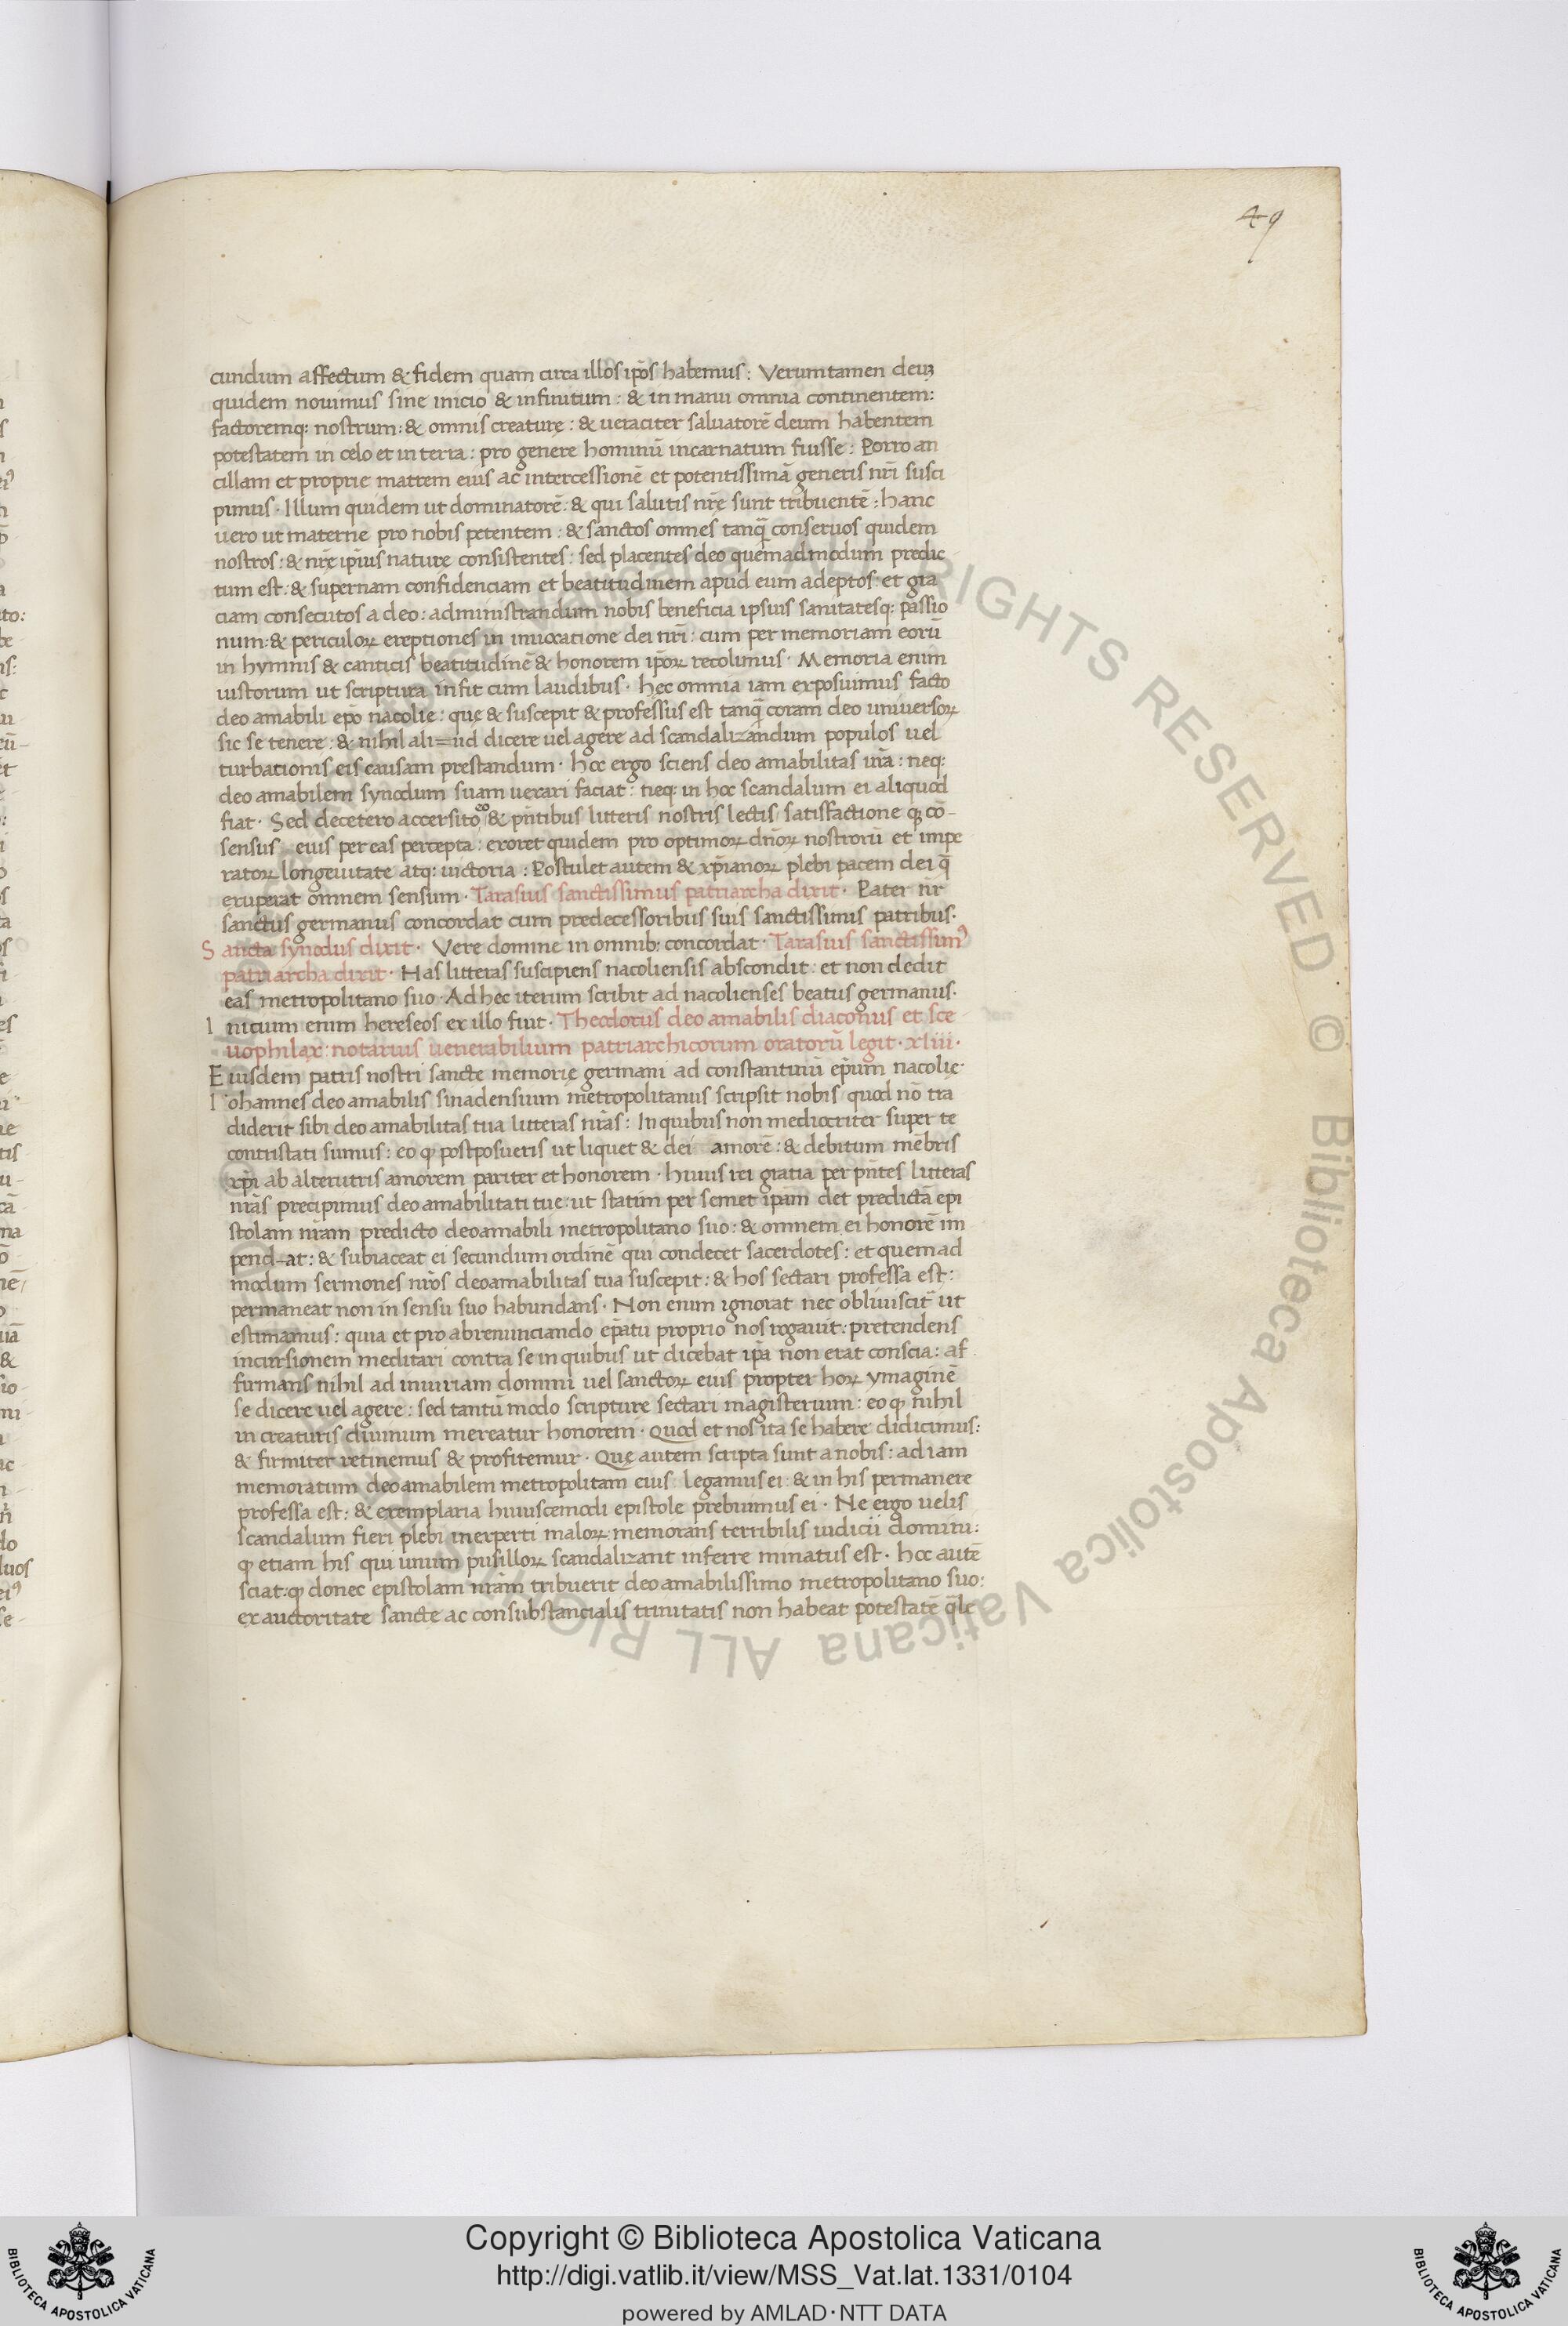 49
cundum affectum & fidem quam circa illos ip̄os habemus: Verumtamen deuȝ
quidem nouimus sine inicio & infinitum: & in manu omnia continentem:
factoremq: nostrum: & omnis creaturę: & ueraciter saluatorē deum habentem
potestatem in celo et in terra: pro genere hominū incarnatum fuisse: Porro an
cillam et proprie matrem eius ac intercessionē et potentissimā generis nr̄i susci
pimus· Illum quidem ut dominatorē: & qui salutis nr̄ę sunt tribuentē: hanc
uero ut materne pro nobis petentem: & sanctos omnes tanq̄ conseruos quidem
nostros: & nr̄ę ip̄ius nature consistentes: sed placentes deo quemadmodum predic
tum est: & supernam confidenciam et beatitudinem apud eum adeptos: et gra
ciam consecutos a deo: administrandum nobis beneficia ipsius sanitatesq: passio
num: & periculoꝝ ereptiones in inuocatione dei nr̄i: cum per memoriam eorū
in hymnis & canticis beatitudinē & honorem ip̄oꝝ recolimus· Memoria enim
iustorum ut scriptura infit cum laudibus· hec omnia iam exposuimus facto
deo amabili ep̄o nacolie: que & suscepit & professus est tanq̄ coram deo uniuersoꝝ
sic se tenere: & nihil ali=ud dicere uel agere ad scandalizandum populos uel
turbationis eis causam prestandum· hoc ergo sciens deo amabilitas ur̄a: neq:
deo amabilem synodum suam uexari faciat: neq: in hoc scandalum ei aliquod
fiat· Sed decetero accersito & pn̄tibus litteris nostris lectis satisfactione ꝙ cō-
sensus eius per eas percepta: exoret quidem pro optimoꝝ dn̄oꝝ nostrorū et impe
ratoꝝ longeuitate atq: uictoria: Postulet autem & xp̄ianoꝝ plebi pacem dei q̄
exuperat omnem sensum· Tarasius sanctissimus patriarcha dixit· Pater nr̄
sanctus germanus concordat cum predecessoribus suis sanctissimis patribus·
Sancta synodus dixit· Vere domine in omnib: concordat· Tarasius sanctissimꝰ
patriarcha dixit· Has litteras suscipiens nacoliensis abscondit: et non dedit
eas metropolitano suo· Ad hec iterum scribit ad nacolienses beatus germanus·
Inicium enim hereseos ex illo fiut· Theodorus deo amabilis diaconus et sce
uophilax: notarius uenerabilium patriarchicorum oratorū legit· xliii·
Eiusdem patris nostri sancte memorię germani ad constantinū ep̄um nacolię·
Iohannes deo amabilis sinadensium metropolitanus scripsit nobis quod nō tra
diderit sibi deo amabilitas tua litteras nr̄as: In quibus non mediocriter super te
contristati sumus: eo ꝙ postposueris ut liquet & dei amorē: & debitum mēbris
xp̄i ab alterutris amorem pariter et honorem· huius rei gratia per pn̄tes litteras
nr̄as precipimus deo amabilitati tue: ut statim per semet ip̄am det predictā epi
stolam nr̄am predicto deoamabili metropolitano suo: & omnem ei honorē im
pend-at: & subiaceat ei secundum ordinē qui condecet sacerdotes: et quemad
modum sermones nr̄os deoamabilitas tua suscepit: & hos sectari professa est:
permaneat non in sensu suo habundans· Non enim ignorat nec obliuiscit̄ ut
estimamus: quia et pro abrenunciando ep̄atu proprio nos rogauit: pretendens
incursionem meditari contra se in quibus ut dicebat ip̄a non erat conscia: af
firmans nihil ad iniuriam domini uel sanctoꝝ eius propter hoꝝ ymaginē
se dicere uel agere: sed tantū modo scripture sectari magisterium: eo ꝙ nihil
in creaturis diuinum mereatur honorem· Quod et nos ita se habere didicimus:
& firmiter retinemus & profitemur· Que autem scripta sunt a nobis: ad iam
memoratum deo amabilem metropolitam eius: legamus ei: & in his permanere
professa est: & exemplaria huiuscemodi epistole prebuimus ei· Ne ergo uelis
scandalum fieri plebi inexperti maloꝝ: memorans terribilis iudicii domini:
ꝙ etiam his qui unum pusilloꝝ scandalizant inferre minatus est· hoc autē
sciat: ꝙ donec epistolam nr̄am tribuerit deo amabilissimo metropolitano suo:
ex auctoritate sancte ac consubstancialis trinitatis non habeat potestatē q̄le
RIGHTS RESERVED © Biblioteca Apostolica Vaticana ALL RIG
Copyright © Biblioteca Apostolica Vaticana
http://digi.vatlib.it/view/MSS_Vat.lat.1331/0104
powered by AMLAD·NTT DATA
BIBLIOTECA APOSTOLICA VATICANA
BIBLIOTECA APOSTOLICA VATICANA